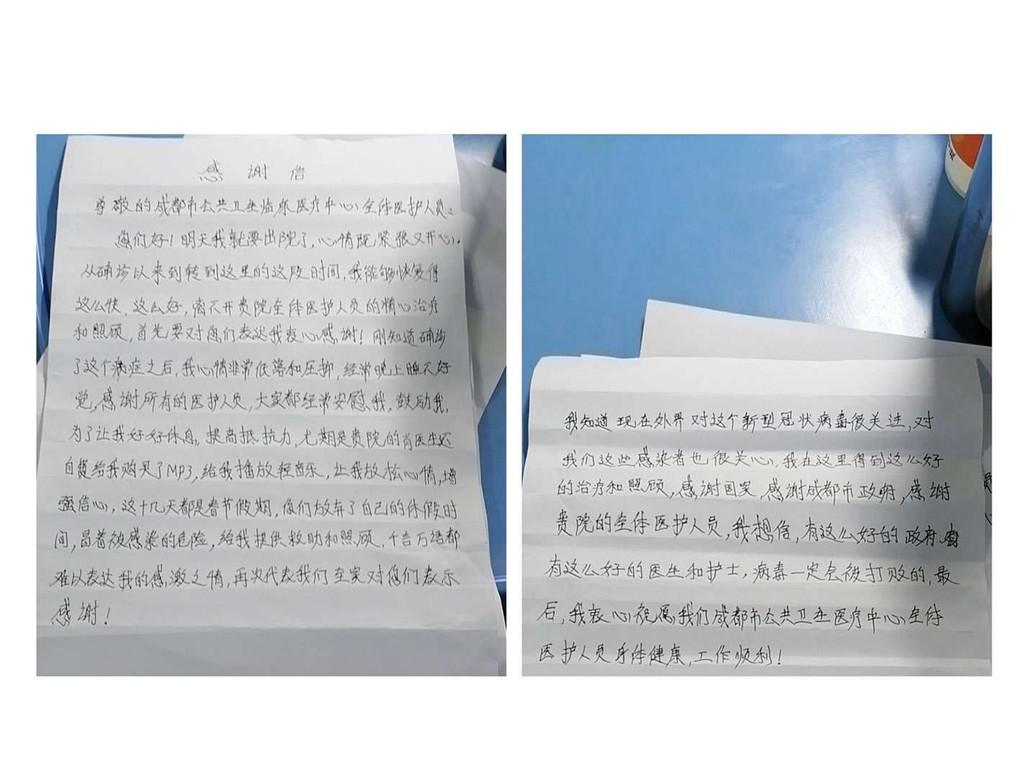 感谢信
尊敬的成都市公共卫生临床医疗中心全体医护人员:
您们好!明天我就要出院了,心情既紧张又开心。
从确诊以来到转到这里的这段时间,我能够恢复得
这么快,这么好,离不开贵院全体医护人员的精心治疗
和照顾,首先要对您们表达我衷心感谢!刚知道确诊
了这个病症之后,我心情非常低落和压抑,经常晚上睡不好
觉,感谢所有的医护人员,大家都经常安慰我,鼓励我,
为了让我好好休息,提高抵抗力,尤期是贵院的肖医生还
自费给我购买了MP3,给我播放轻音乐,让我放松心情,增
强信心,这十几天都是春节假期,您们放弃了自己的休假时
间,冒着被感染的危险,给我提供救助和照顾,千言万语都
难以表达我的感激之情,再次代表我们全家对您们表示
感谢!
我知道现在外界对这个新型冠状病毒很关注,对
我们这些感染者也很关心,我在这里得到这么好
的治疗和照顾,感谢国家,感谢成都市政府,感谢
贵院的全体医护人员,我想信,有这么好的政府,
有这么好的医生和护士,病毒一定会被打败的,最
后,我衷心祝愿我们成都市公共卫生医疗中心全体
医护人员身体健康,工作顺利!